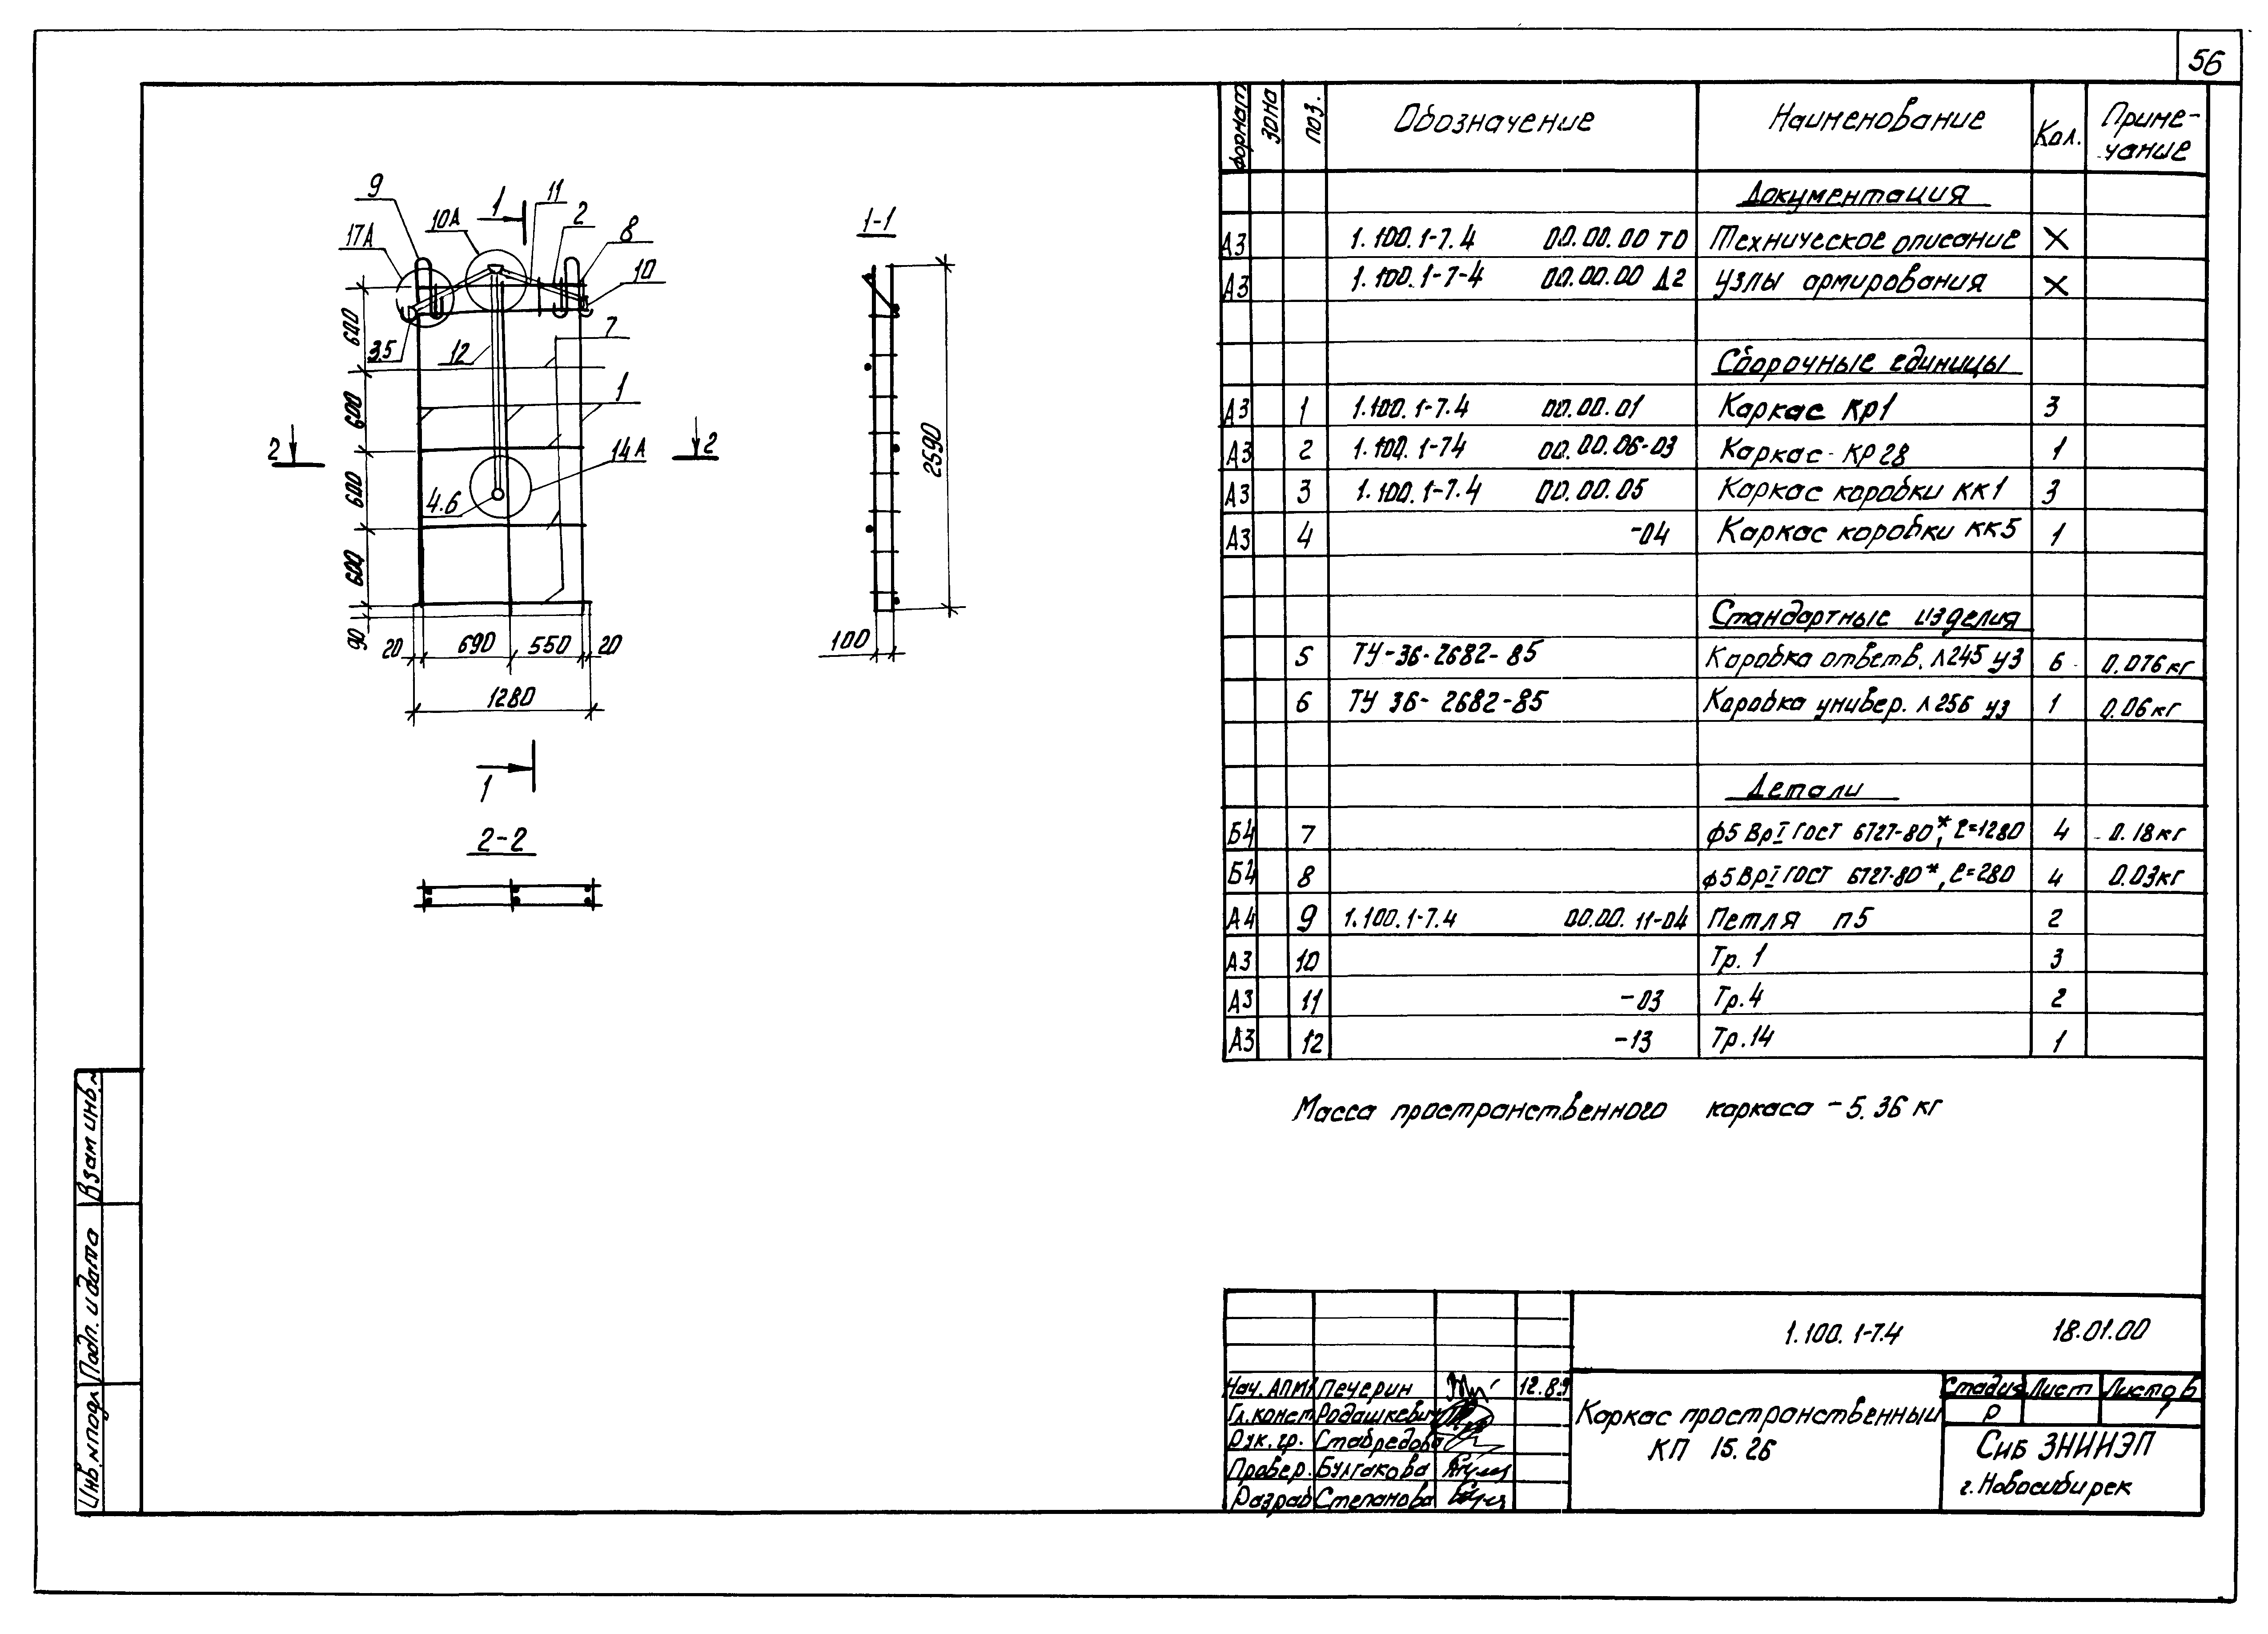 56
формат зона поз. Обозначение Наименование Кол. Приме-
чание
Документация
А3 1.100.1-7.4 00.00.00 ТО Техническое описание X
А3 1.100.1-7-4 00.00.00 Д2 Узлы армирования X
Сборочные единицы
А3 1 1.100.1-7.4 00.00.01 Каркас Кр1 3
А3 2 1.100.1-74 00.00.06-03 Каркас КР28 1
А3 3 1.100.1-7.4 00.00.05 Каркас коробки КК1 3
А3 4 -04 Каркас коробки КК5 1
Стандартные изделия
5 ТУ-36-2682-85 Коробка ответв. Л245 У3 6 0.076кг
6 ТУ 36-2682-85 Коробка универ. Л256 У3 1 0.06кг
Детали
Б4 7 ф5 ВрI ГОСТ 6727-80*, ℓ=1280 4 0.18кг
Б4 8 ф5 ВрI ГОСТ 6727-80*, ℓ=280 4 0.03кг
А4 9 1.100.1-7.4 00.00.11-04 Петля П5 2
А3 10 Тр.1 3
А3 11 -03 Тр.4 2
А3 12 -13 Тр.14 1
Масса пространственного каркаса - 5.36 кг
9
17А
10А
1
11
2
8
10
3.5
12
7
1
2
2
14А
4.6
600
600
600
600
90
20 690 550 20
1280
1
1-1
2590
100
2-2
Взам инв.
Подп. и дата
Инв. N подл
1.100.1-7.4 18.01.00
Нач. АПМ1 Печерин 12.89
Гл. конст Родашкевич
Рук. гр. Ставредова
Провер. Булгакова
Разраб Степанова
Каркас пространственный
КП 15.26
Стадия Лист Листов
Р 1
СИБ ЗНИИЭП
г. Новосибирск